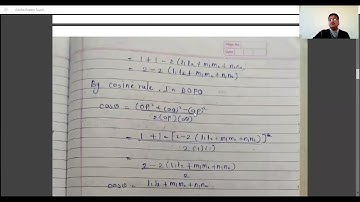 = 1+1-2(l₁l₂+m₁m₂+n₁n₂)
= 2-2(l₁l₂+m₁m₂+n₁n₂)
By cosine rule, In ΔOPQ
cosθ = (OP)²+(OQ)²-(QP)²
2(OP)(OQ)
= 1+1-[2-2(l₁l₂+m₁m₂+n₁n₂)]
2(1)(1)
= 2-2(l₁l₂+m₁m₂+n₁n₂)
2
cosθ = l₁l₂+m₁m₂+n₁n₂